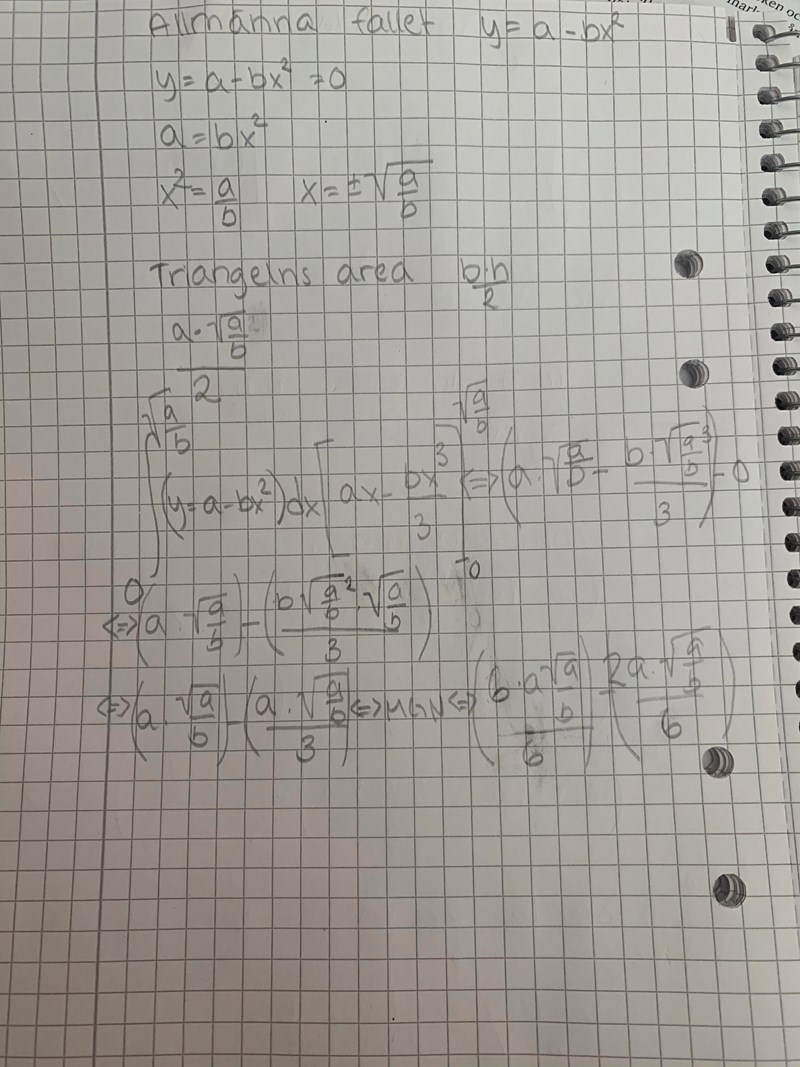 ken oc
mart.
Allmänna fallet y = a - bx²
y = a - bx² = 0
a = bx²
x² = a/b x = ±√(a/b)
Triangelns area b·h/2
a·√(a/b)/2
∫₀^√(a/b) (y = a - bx²)dx [ax - bx³/3]₀^√(a/b) <=> (a·√(a/b) - b·√(a/b)³/3) - 0
<=> (a·√(a/b)) - (b√(a/b)²·√(a/b)/3)
<=> (a·√(a/b)) - (a·√(a/b)/3) <=> MGN <=> (6·a√(a/b)/6) - (2a·√(a/b)/6)